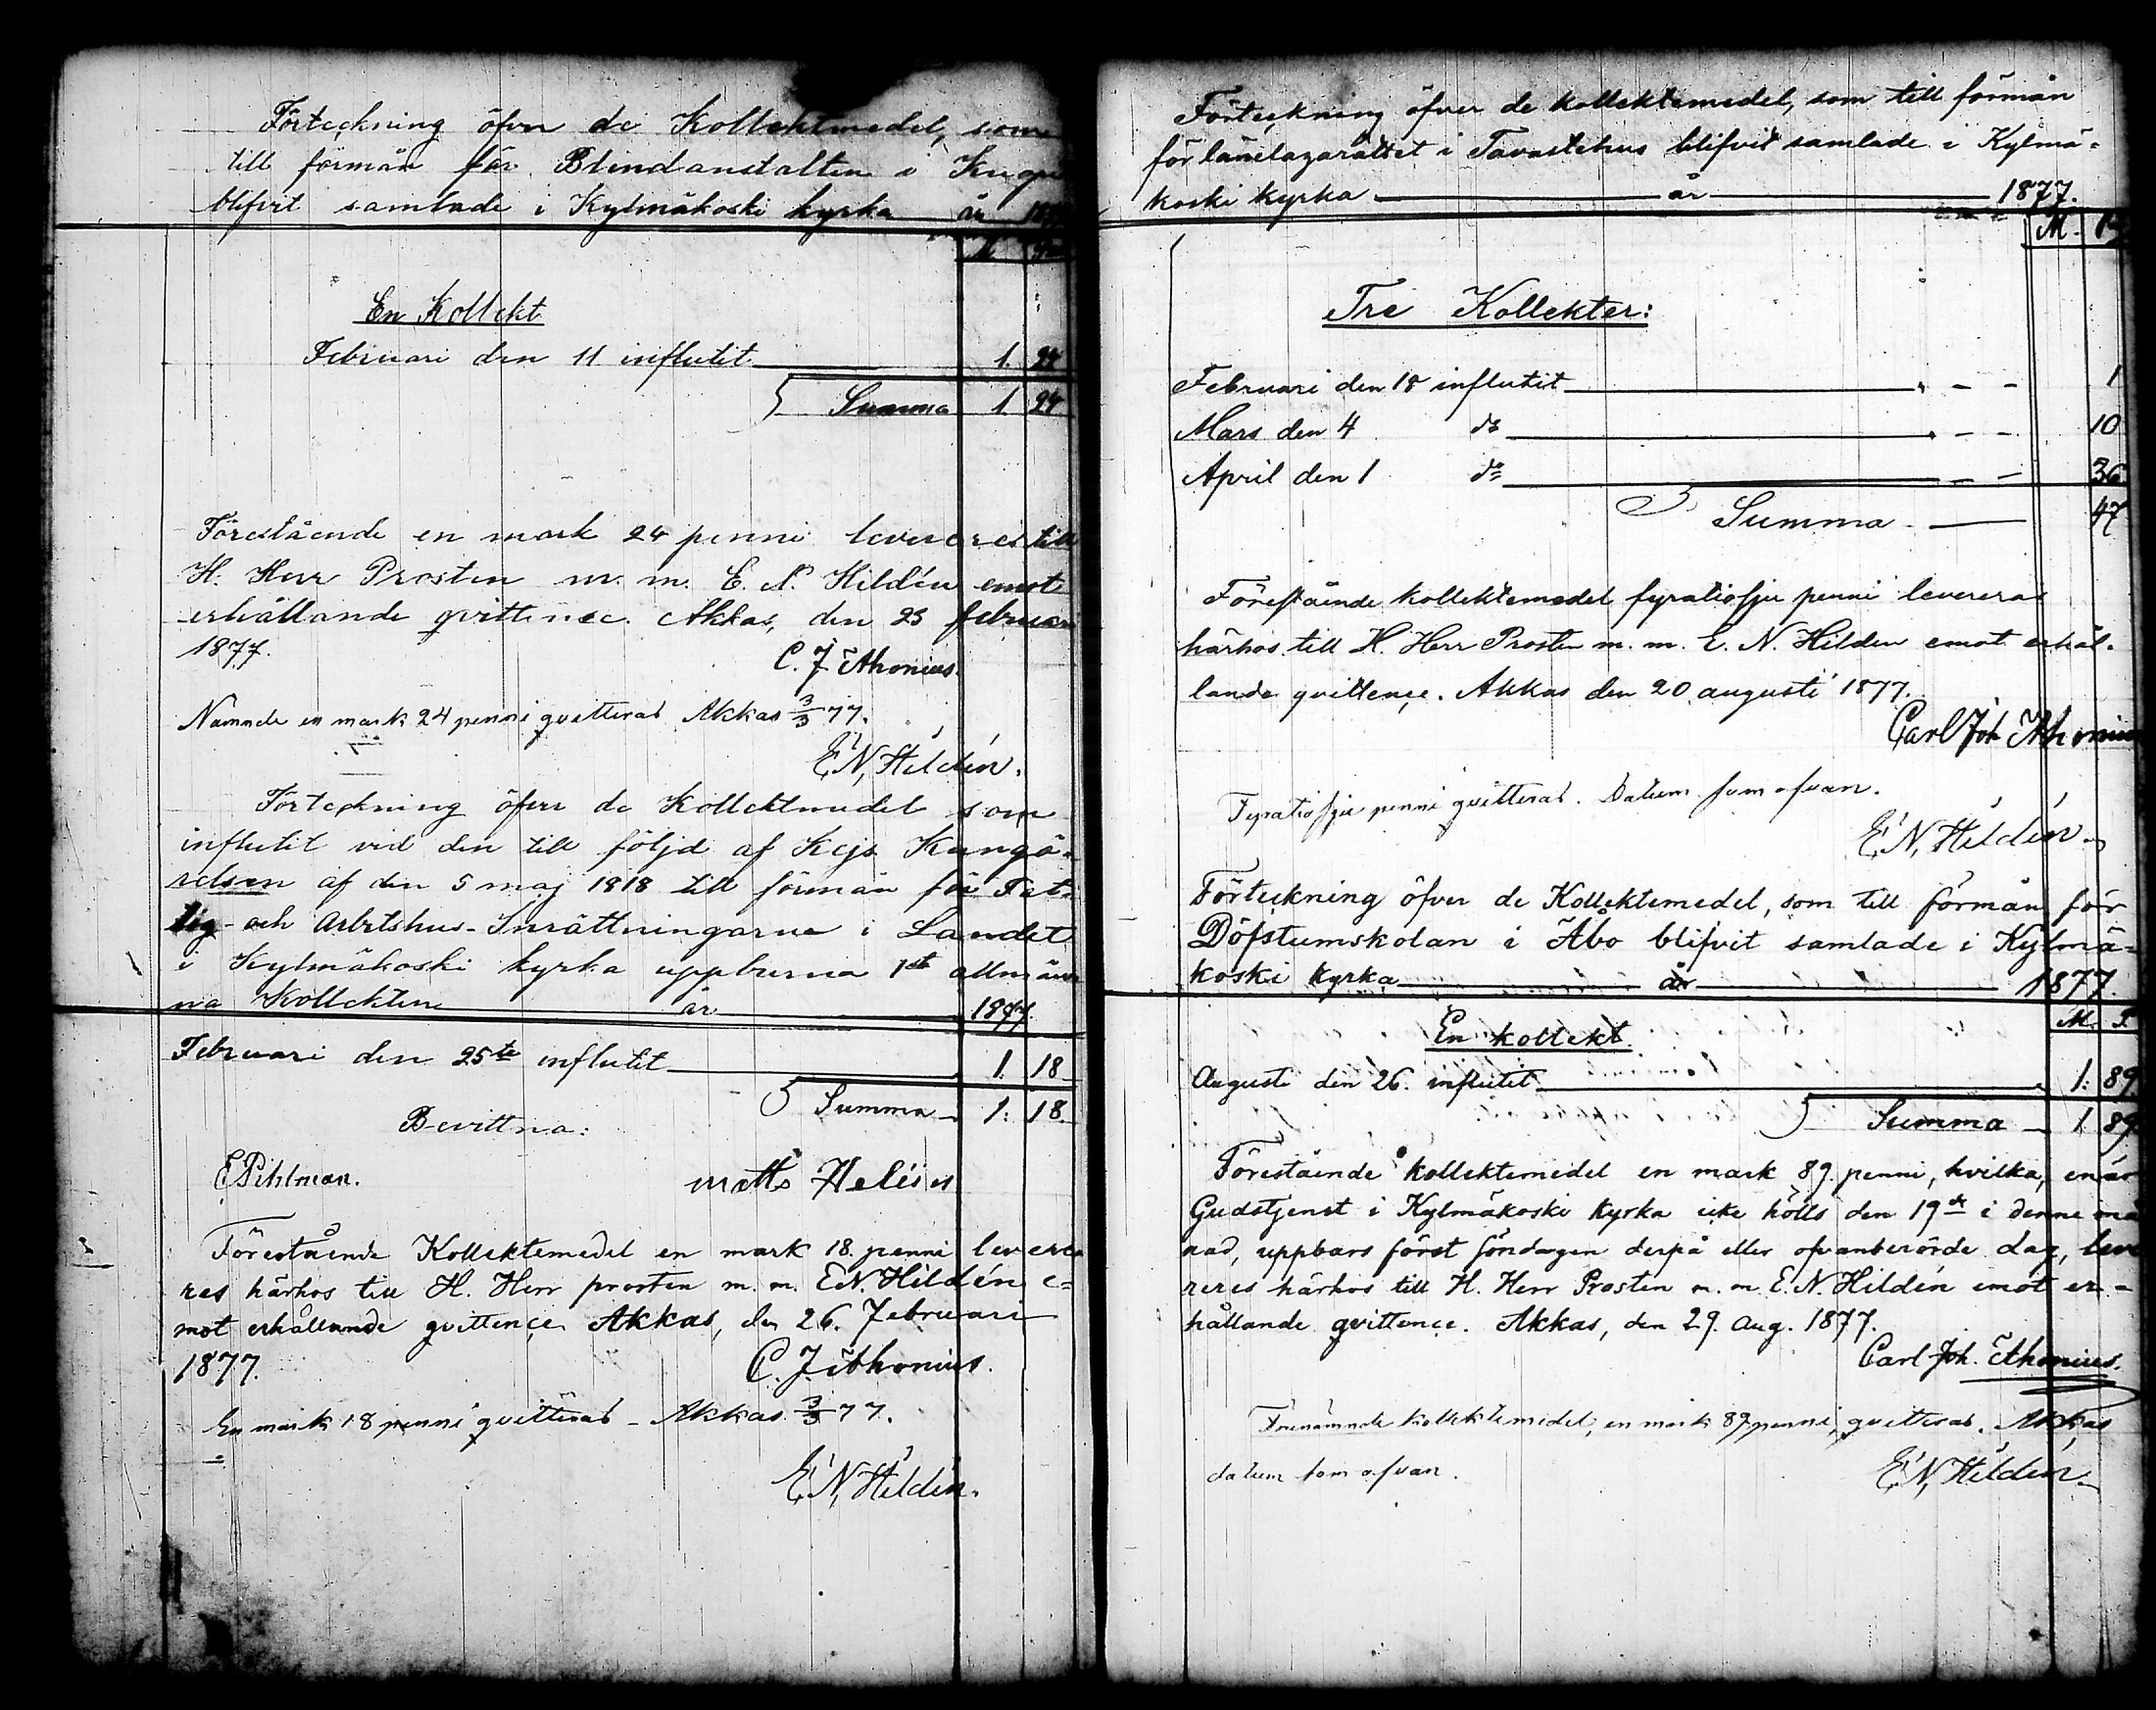 Förteckning öfver de Kollektmedel, som
till förmån för Blindanstalten i Kuopio
blifvit samlade i Kylmäkoski kyrka år 1877
M
En Kollekt
Februari den 11 influtit 1. 24
Summa 1. 24
Förestående en mark 24 penni levereres till
H. Herr Prosten m. m. E. N. Hildén emot
erhållande qvittence. Akkas, den 25 februari
1877.
C. J. Ithonius.
Nämnde en mark 24 penni qvitteras Akkas 3/3 77.
E. N. Hildén.
Förteckning öfver de Kollektmedel som
influtit vid den till följd af Kejs Kungö-
relsen af den 5 maj 1818 till förmån för Fat-
tig- och Arbetshus-Inrättningarne i Landet
i Kylmäkoski kyrka uppburna 1sta allmän
na Kollekten år 1877.
Februari den 25te influtit 1. 18
Summa 1: 18.
Bevittna:
E Pihlman. matts Helin
Förestående Kollektemedel en mark 18. penni levere
res härhos till H. Herr prosten m. m. E.N. Hildén e=
mot erhållande qvittence Akkas, den 26. Februari
1877. C. J. Ithonius.
En mark 18 penni qvitteras - Akkas 3/3 77.
E. N. Hildén.
Förteckning öfver de kollektemedel, som till förmån
för länelazarättet i Tavastehus blifvit samlade i Kylmä=
koski kyrka år 1877.
M. P
Tre Kollekter:
Februari den 18 influtit - - 1
Mars den 4 do - - 10
April den 1 do - - 36
Summa - 47
Förestående kollektemedel fyratiosju penni levereras
härhos till H. Herr Prosten m. m. E. N. Hildén emot erhål-
lande qvittence. Akkas den 20 augusti 1877.
Carl Joh Ithonius
Fyratiosju penni qvitteras. Datum som ofvan.
E. N. Hildén.
Förteckning öfver de Kollektemedel, som till förmån för
Döfstumskolan i Åbo blifvit samlade i Kylmä=
koski kyrka år 1877.
M. P.
En kollekt.
Augusti den 26. influtit 1: 89.
Summa 1 89.
Förestående kollektemedel en mark 89. penni, hvilka, enär
Gudstjenst i Kylmäkoski kyrka icke hölls den 19de i denne må
nad, uppbars först söndagen derpå eller ofvanberörde dag, leve
reres härhos till H. Herr Prosten m. m. E. N. Hildén emot er-
hållande qvittence. Akkas, den 29. Aug. 1877.
Carl Joh. Ithonius.
Förenämnde kollektemedel, en mark 89 penni, qvitteras. Akkas
datum som ofvan.
E. N. Hildén.